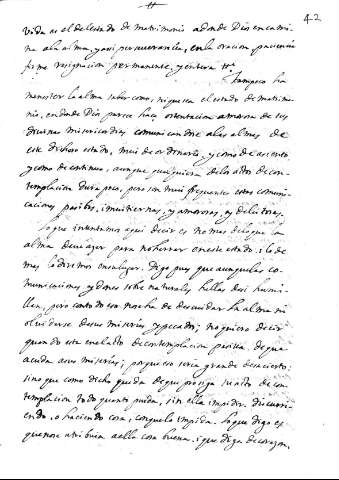 42
vida es el del estado de matrimonio adonde Dios encami-
na al alma, y assi perseverancia, en la oracion paciencia
firme resignacion permanente, y entera
Tampoco ha
menester la alma saber como, ni que sea el estado de matrimo-
nio, en donde Dios parece hace ostentacion amorosa de sus
divinas misericordias comunicandose a las almas de
este dichoso estado, mui de ordinario, y como de asiento,
y como de continuo, aunque qualquiera de los actos de con-
templacion dura poco, pero son mui frequentes estas comuni-
caciones pasibas, i mui tiernas, y amorosas, y deleitosas.
Lo que intentamos aqui decir es no mas de lo que la
alma de hazer para no herrar en este estado, i lo de
mas lo diremos en su lugar. Digo pues que aunque las co-
municaciones, y dones sobre naturales, hellas de si humi-
llan, pero con todo eso no se ha de descuidar la alma ni
olvidarse de sus miserias, y pecados; no quiero decir
quando esta en el acto de contemplacion pasiba, de que
acuda a sus miserias; porque eso seria grande desacierto,
sino que como dicho queda dequeprosiga su acto de con-
templacion todo quanto pueda, sin ella impedir, discurri-
endo, o haciendo cosa, con que la impida. Lo que digo es
que no se atribuia a ella cosa buena, i que diga de corazon,